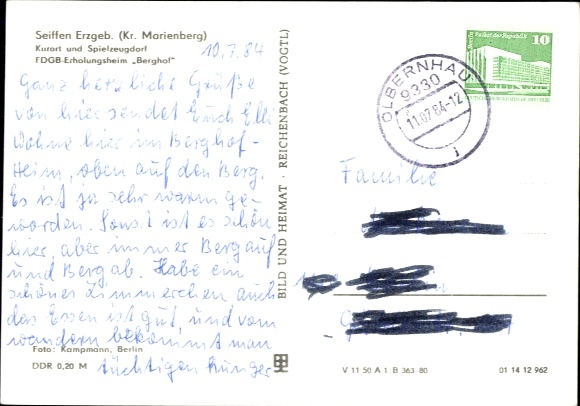 Seiffen Erzgeb. (Kr. Marienberg)
Kurort und Spielzeugdorf
FDGB-Erholungsheim „Berghof"
10.7.84
Ganz herzliche Grüße
von hier sendet Euch Elli
Wohne hier im Berghof-
Heim, oben auf den Berg.
Es ist ja sehr warm ge-
worden. Sonst ist es schön
hier, aber immer Berg auf
und Berg ab. Habe ein
schönes Zimmerchen auch
das Essen ist gut, und vom
wandern bekommt man
tüchtigen Hunger
Foto: Kampmann, Berlin
DDR 0,20 M
BILD UND HEIMAT · REICHENBACH (VOGTL)
OLBERNHAU
9330
11.07.84-12
Berlin Palast der Republik
10
Familie
V 11 50 A 1 B 363 80
01 14 12 962